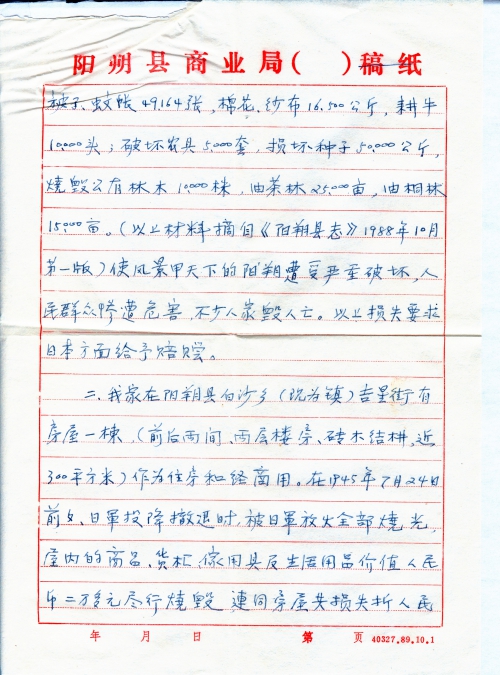 阳朔县商业局( )稿纸
被子、蚊帐49.164张,棉花、纱布16.500公斤,耕牛
10.000头;破坏农具5.000套,损坏种子50.000公斤,
烧毁公有林木10.000株,油茶林25.000亩,油桐林
15.000亩。(以上材料摘自《阳朔县志》1988年10月
第一版)使风景甲天下的阳朔遭受严重破坏,人
民群众惨遭危害,不少人家毁人亡。以上损失要求
日本方面给予赔偿。
二、我家在阳朔县白沙乡(现为镇)吉星街有
房屋一栋,(前后两间、两层楼房、砖木结构,近
300平方米)作为住房和经商用。在1945年7月24日
前后、日军投降撤退时,被日军放火全部烧光,
屋内的商品、货柜、傢用具及生活用品价值人民
币二万多元尽行烧毁 连同房屋共损失折人民
年 月 日 第 页 40327.89.10.1